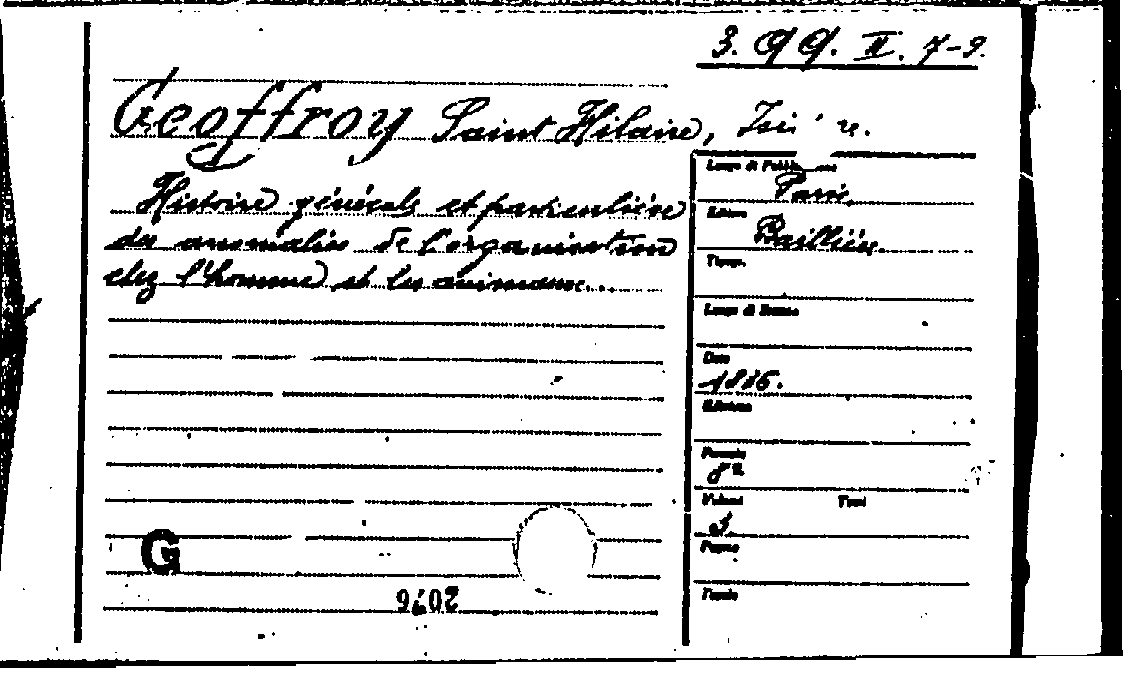 3. QQ. II. 7-9.
Geoffroy Saint Hilaire,
Histoire générale et particulière
des anomalies de l'organisation
chez l'homme et les animaux...
Luogo di Pubbl
Paris.
Editore
Baillière.
Tipogr.
Luogo di Stampa
Data
Edizione
Formato
8º.
Volumi Tomi
3.
Pagine
Tavole
G
2076